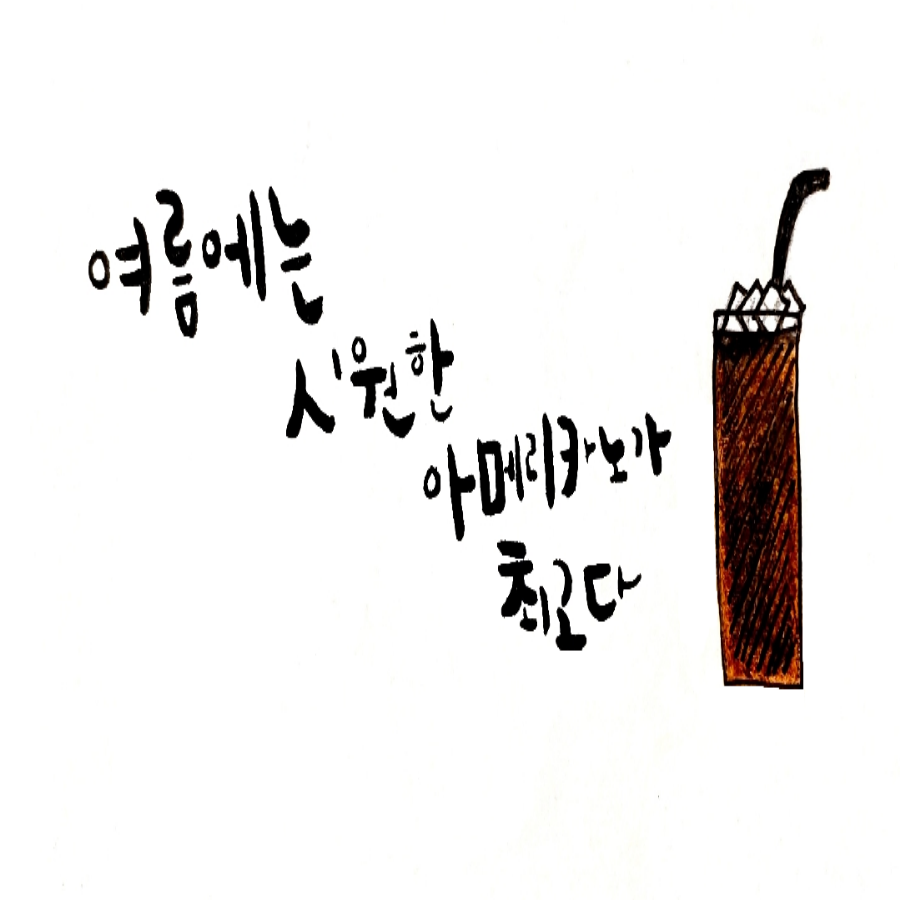 여름에는
시원한
아메리카노가
최고다